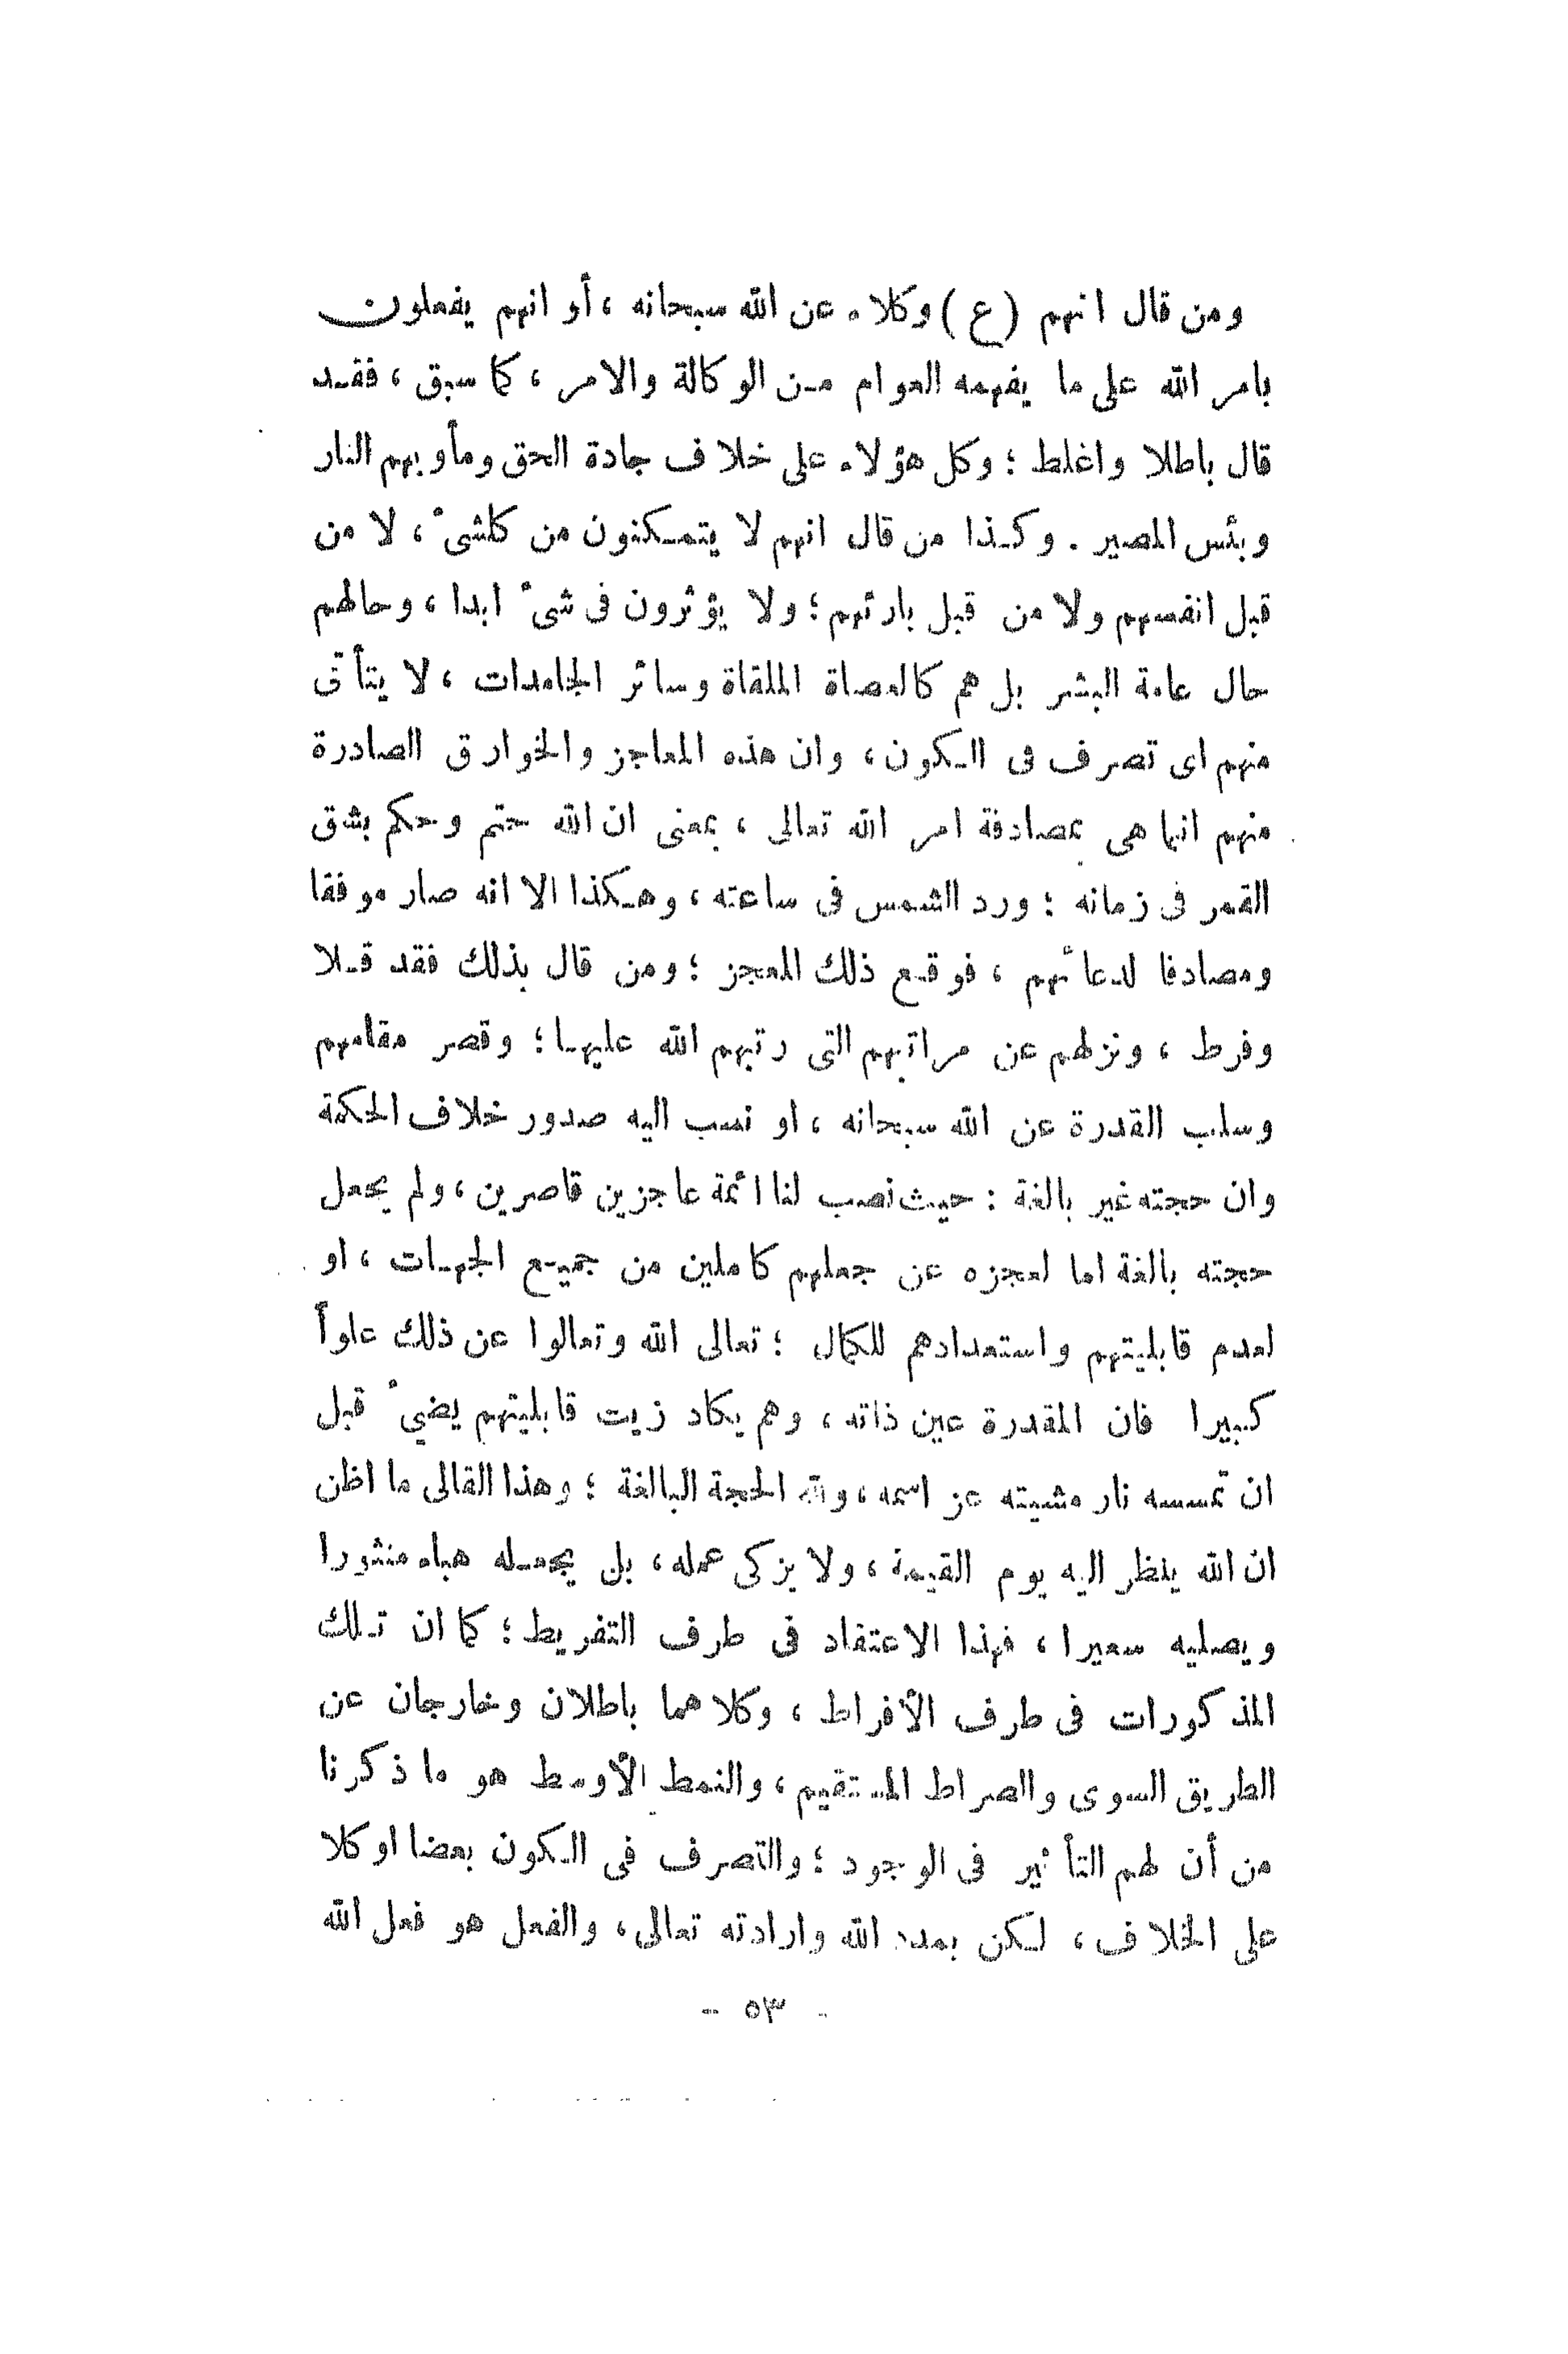 ومن قال انهم (ع) وكلاء عن الله سبحانه ، أو انهم يفعلون
بامر الله على ما يفهمه العوام من الوكالة والامر ، كما سبق ، فقد
قال باطلا واغلط ؛ وكل هؤلاء على خلاف جادة الحق ومأويهم النار
وبئس المصير . وكذا من قال انهم لا يتمكنون من كلشىء ، لا من
قبل انفسهم ولا من قبل بارئهم ؛ ولا يؤثرون فى شىء ابدا ، وحالهم
حال عامة البشر بل هم كالعصاة الملقاة وسائر الجامدات ، لا يتأتى
منهم اى تصرف فى الكون ، وان هذه المعاجز والخوارق الصادرة
منهم انما هى بمصادفة امر الله تعالى ، بمعنى ان الله حتم وحكم بشق
القمر فى زمانه ؛ ورد الشمس فى ساعته ، وهكذا الا انه صار موفقا
ومصادفا لدعائهم ، فوقع ذلك المعجز ؛ ومن قال بذلك فقد قلا
وفرط ، ونزلهم عن مراتبهم التى رتبهم الله عليها ؛ وقصر مقامهم
وسلب القدرة عن الله سبحانه ، او نسب اليه صدور خلاف الحكمة
وان حجته غير بالغة : حيث نصب لنا ائمة عاجزين قاصرين ، ولم يجعل
حجته بالغة اما لعجزه عن جعلهم كاملين من جميع الجهات ، او
لعدم قابليتهم واستعدادهم للكمال ؛ تعالى الله وتعالوا عن ذلك علواً
كبيرا فان المقدرة عين ذاته ، وهم يكاد زيت قابليتهم يضيء قبل
ان تمسسه نار مشيته عز اسمه ، ولله الحجة البالغة ؛ وهذا القالى ما اظن
ان الله ينظر اليه يوم القيمة ، ولا يزكى عمله ، بل يجعله هباء منثورا
ويصليه سعيرا ، فهذا الاعتقاد فى طرف التفريط ؛ كما ان تلك
المذكورات فى طرف الأفراط ، وكلاهما باطلان وخارجان عن
الطريق السوى والصراط المستقيم ، والنمط الأوسط هو ما ذكرنا
من أن لهم التأثير فى الوجود ؛ والتصرف فى الكون بعضا او كلا
على الخلاف ، لكن بمدد الله وارادته تعالى ، والفعل هو فعل الله
- ٥٣ -